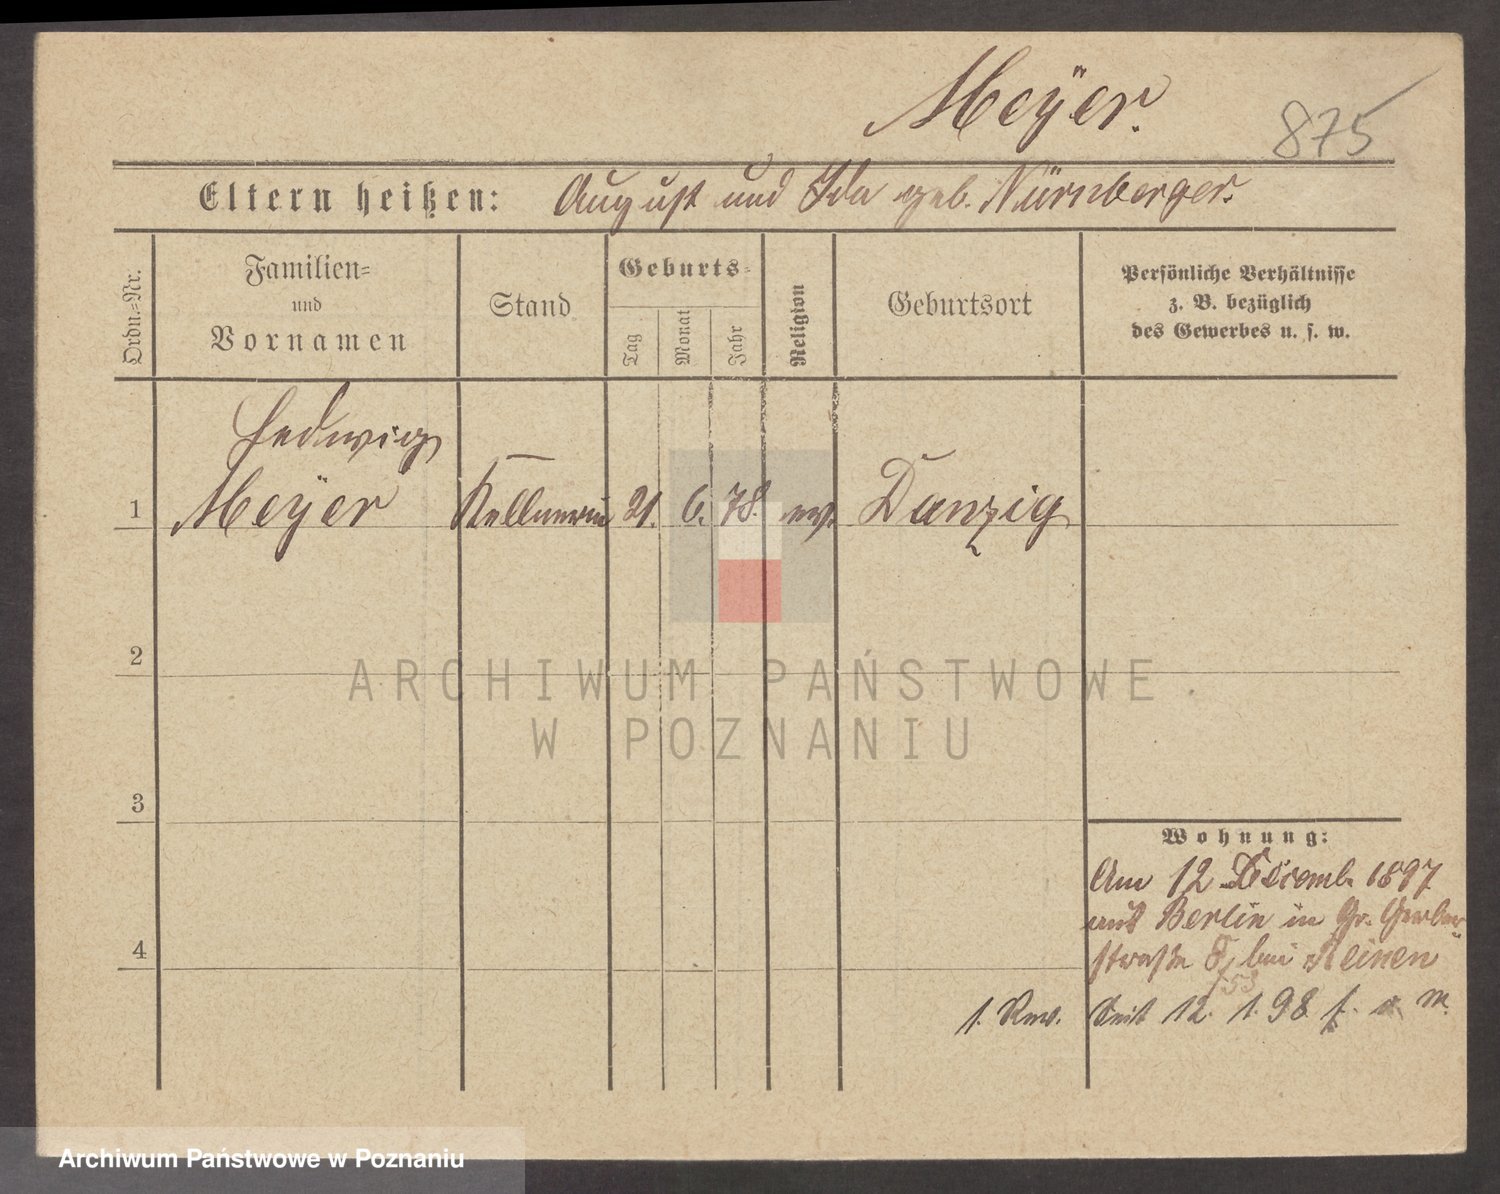 Meÿer.
875
Eltern heißen: August und Ida geb. Nürnberger.
Ordn.-Nr.
Familien-
und
Vornamen
Stand
Geburts-
Tag
Monat
Jahr
Religion
Geburtsort
Persönliche Verhältnisse
z. B. bezüglich
des Gewerbes u. s. w.
Hedwig
1 Meÿer Kellnerin 21. 6. 78. ev. Danzig
2
ARCHIWUM PAŃSTWOWE
W POZNANIU
3
Wohnung:
Am 12 Decemb. 1897
aus Berlin in Gr. Gerber
straße 8, bei
4
53
seit 12. 1. 98
Archiwum Państwowe w Poznaniu